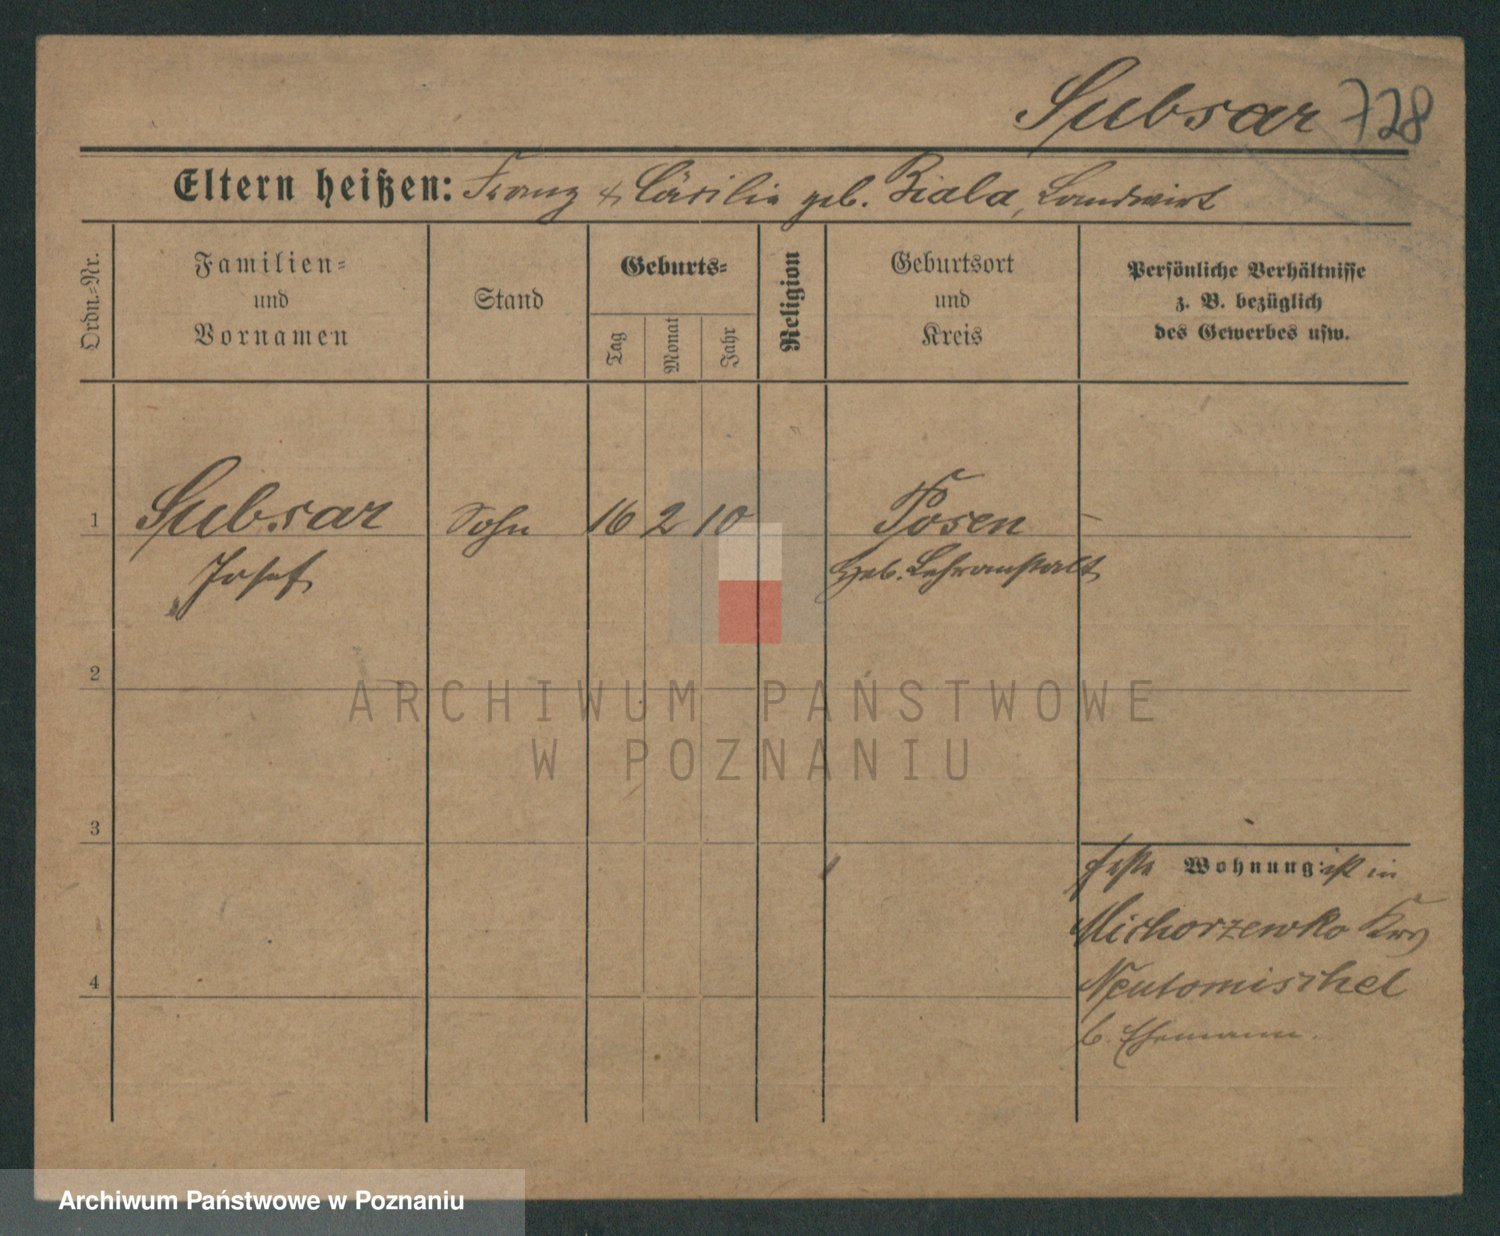 Subsar 728
Eltern heißen: Franz & Cäcilia geb. Biala, Landwirt
Ordn.=Nr.
Familien=
und
Vornamen
Stand
Geburts=
Tag
Monat
Jahr
Religion
Geburtsort
und
Kreis
Persönliche Verhältnisse
z. B. bezüglich
des Gewerbes usw.
1 Subsar Sohn 16 2 10 Posen -
Josef Heb. Lehranstalt
2
ARCHIWUM PAŃSTWOWE
W POZNANIU
3
feste Wohnung: ist in
Michorzewko Krs
4 Neutomischel
b. Ehemann.
Archiwum Państwowe w Poznaniu